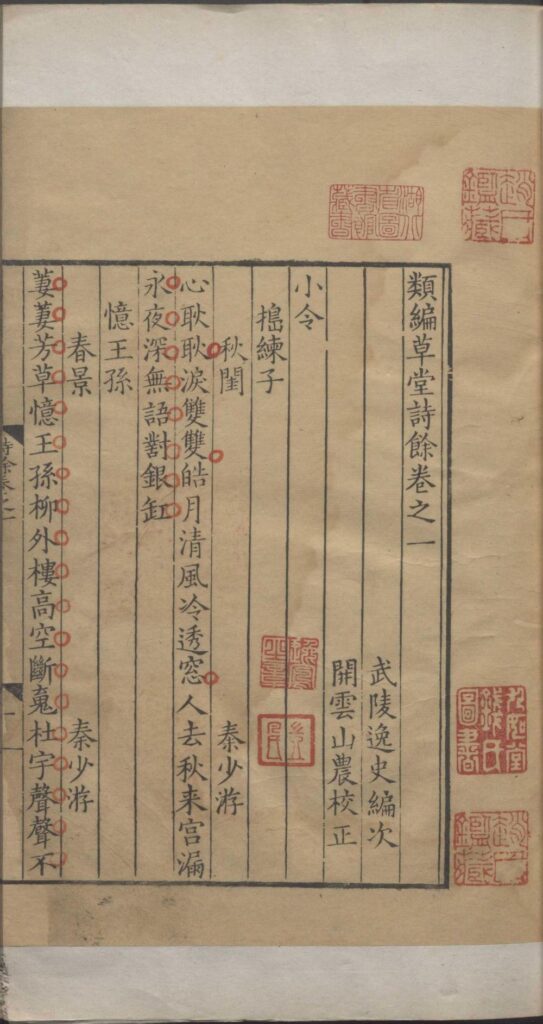 類編草堂詩餘卷之一
武陵逸史編次
開雲山農校正
小令
搗練子
秋閨
秦少游
心耿耿淚雙雙皓月清風冷透窓人去秋来宫漏
永夜深無語對銀缸
憶王孫
春景
秦少游
萋萋芳草憶王孫柳外樓高空斷䰟杜宇聲聲不